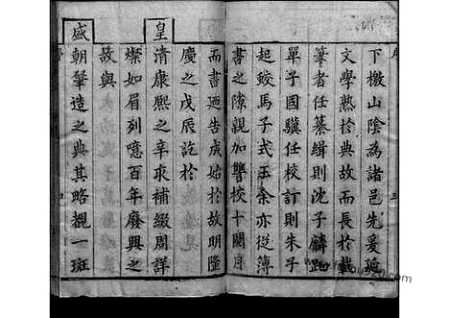 下檄山陰為諸邑先爰延
文學熟於典故而長於載
筆者任纂緝則沈子麟趾
單子國驥任校訂則朱子
起蛟馬子式玉余亦從簿
書之隙親加讐校十閱月
而書廼告成始於故明隆
慶之戊辰訖於
皇清康熙之辛亥補綴周詳
燦如眉列噫百年廢興之
故與
盛朝肇造之典其略覩一斑